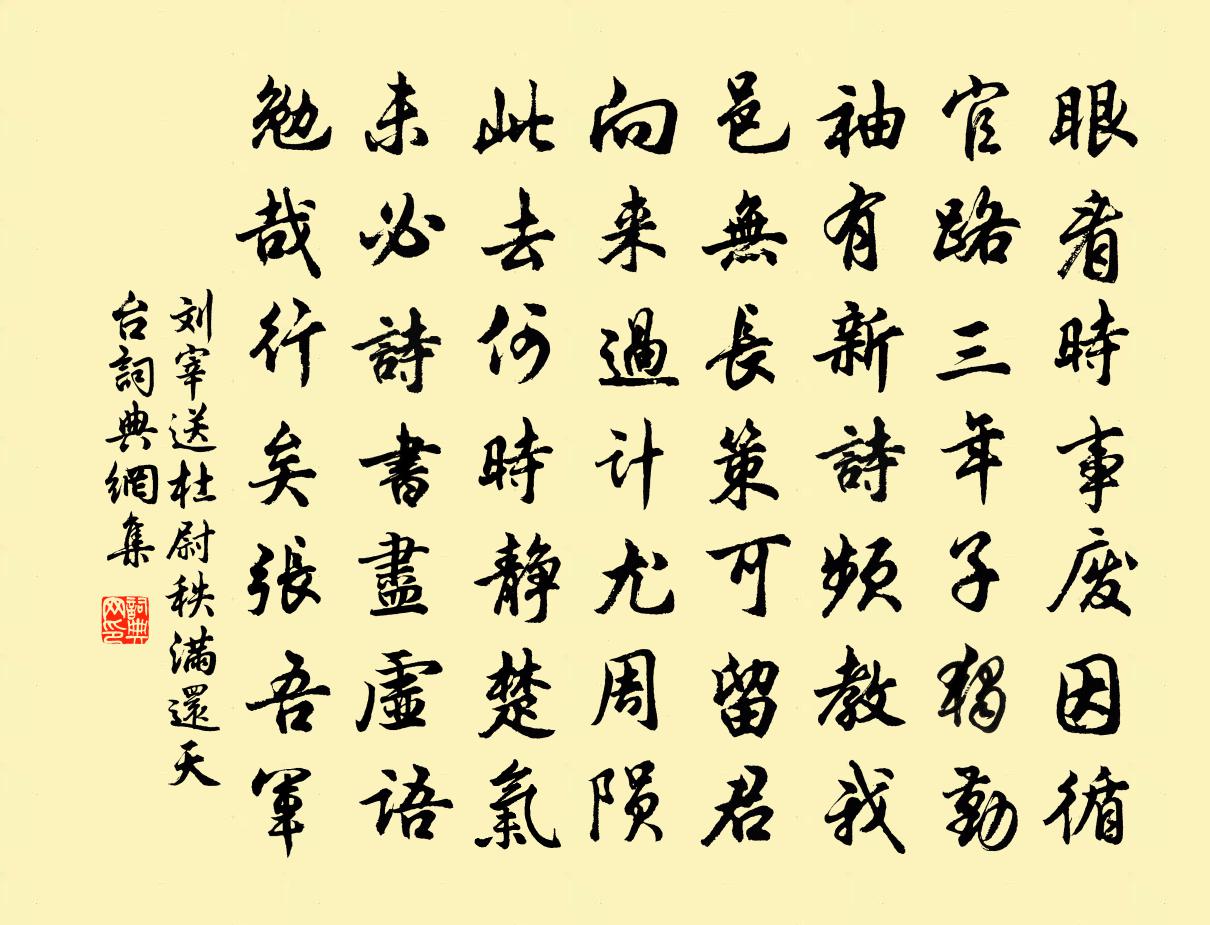 眼看時事廢因循
官路三年子獨勤
袖有新詩頻教我
邑無長策可留君
向来過计尤周陨
此去何時静楚氣
未必詩書盡虛語
勉哉行矣張吾軍
刘宰送杜尉秩滿還天
台詞典網集
詞典
网印